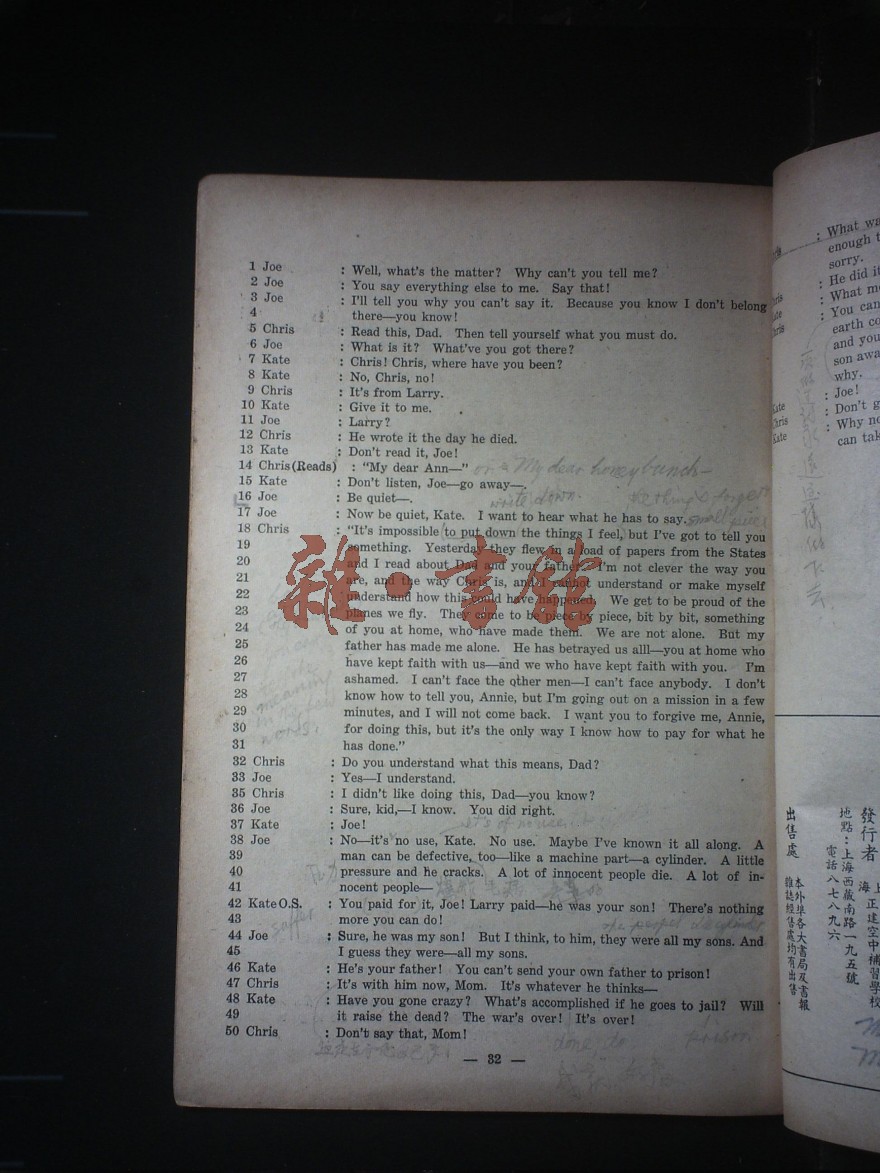 1 Joe : Well, what's the matter? Why can't you tell me?
2 Joe : You say everything else to me. Say that!
3 Joe : I'll tell you why you can't say it. Because you know I don't belong
4 there—you know!
5 Chris : Read this, Dad. Then tell yourself what you must do.
6 Joe : What is it? What've you got there?
7 Kate : Chris! Chris, where have you been?
8 Kate : No, Chris, no!
9 Chris : It's from Larry.
10 Kate : Give it to me.
11 Joe : Larry?
12 Chris : He wrote it the day he died.
13 Kate : Don't read it, Joe!
14 Chris (Reads) : "My dear Ann—" or = My dear honeybunch—
15 Kate : Don't listen, Joe—go away—.
16 Joe : Be quiet—. write down.
17 Joe : Now be quiet, Kate. I want to hear what he has to say. small piece
18 Chris : "It's impossible to put down the things I feel, but I've got to tell you
19 something. Yesterday they flew in a load of papers from the States
20 and I read about Dad and your father. I'm not clever the way you
21 are, and the way Chris is, and I cannot understand or make myself
22 understand how this could have happened. We get to be proud of the
23 planes we fly. They come to be piece by piece, bit by bit, something
24 of you at home, who have made them. We are not alone. But my
25 father has made me alone. He has betrayed us alll—you at home who
26 have kept faith with us—and we who have kept faith with you. I'm
27 ashamed. I can't face the other men—I can't face anybody. I don't
28 know how to tell you, Annie, but I'm going out on a mission in a few
29 minutes, and I will not come back. I want you to forgive me, Annie,
30 for doing this, but it's the only way I know how to pay for what he
31 has done."
32 Chris : Do you understand what this means, Dad?
33 Joe : Yes—I understand.
35 Chris : I didn't like doing this, Dad—you know?
36 Joe : Sure, kid,—I know. You did right.
37 Kate : Joe!
38 Joe : No—it's no use, Kate. No use. Maybe I've known it all along. A
39 man can be defective, too—like a machine part—a cylinder. A little
40 pressure and he cracks. A lot of innocent people die. A lot of in-
41 nocent people—
42 Kate O.S. : You paid for it, Joe! Larry paid—he was your son! There's nothing
43 more you can do!
suffer
44 Joe : Sure, he was my son! But I think, to him, they were all my sons. And
45 I guess they were—all my sons.
46 Kate : He's your father! You can't send your own father to prison!
47 Chris : It's with him now, Mom. It's whatever he thinks—
48 Kate : Have you gone crazy? What's accomplished if he goes to jail? Will
49 it raise the dead? The war's over! It's over!
50 Chris : Don't say that, Mom!
prison.
— 32 —
雜·書館
: What
enough
sorry.
: He did it
: What
: You can
earth
and you
son
why.
: Joe!
Kate : Don't
Chris : Why
Kate can
發行者
上海
正建空中補習學校
地點：上海西藏南路一九五號
電話八七八九六
出售處
本外埠各大書局及書報
雜誌經售處均有出售